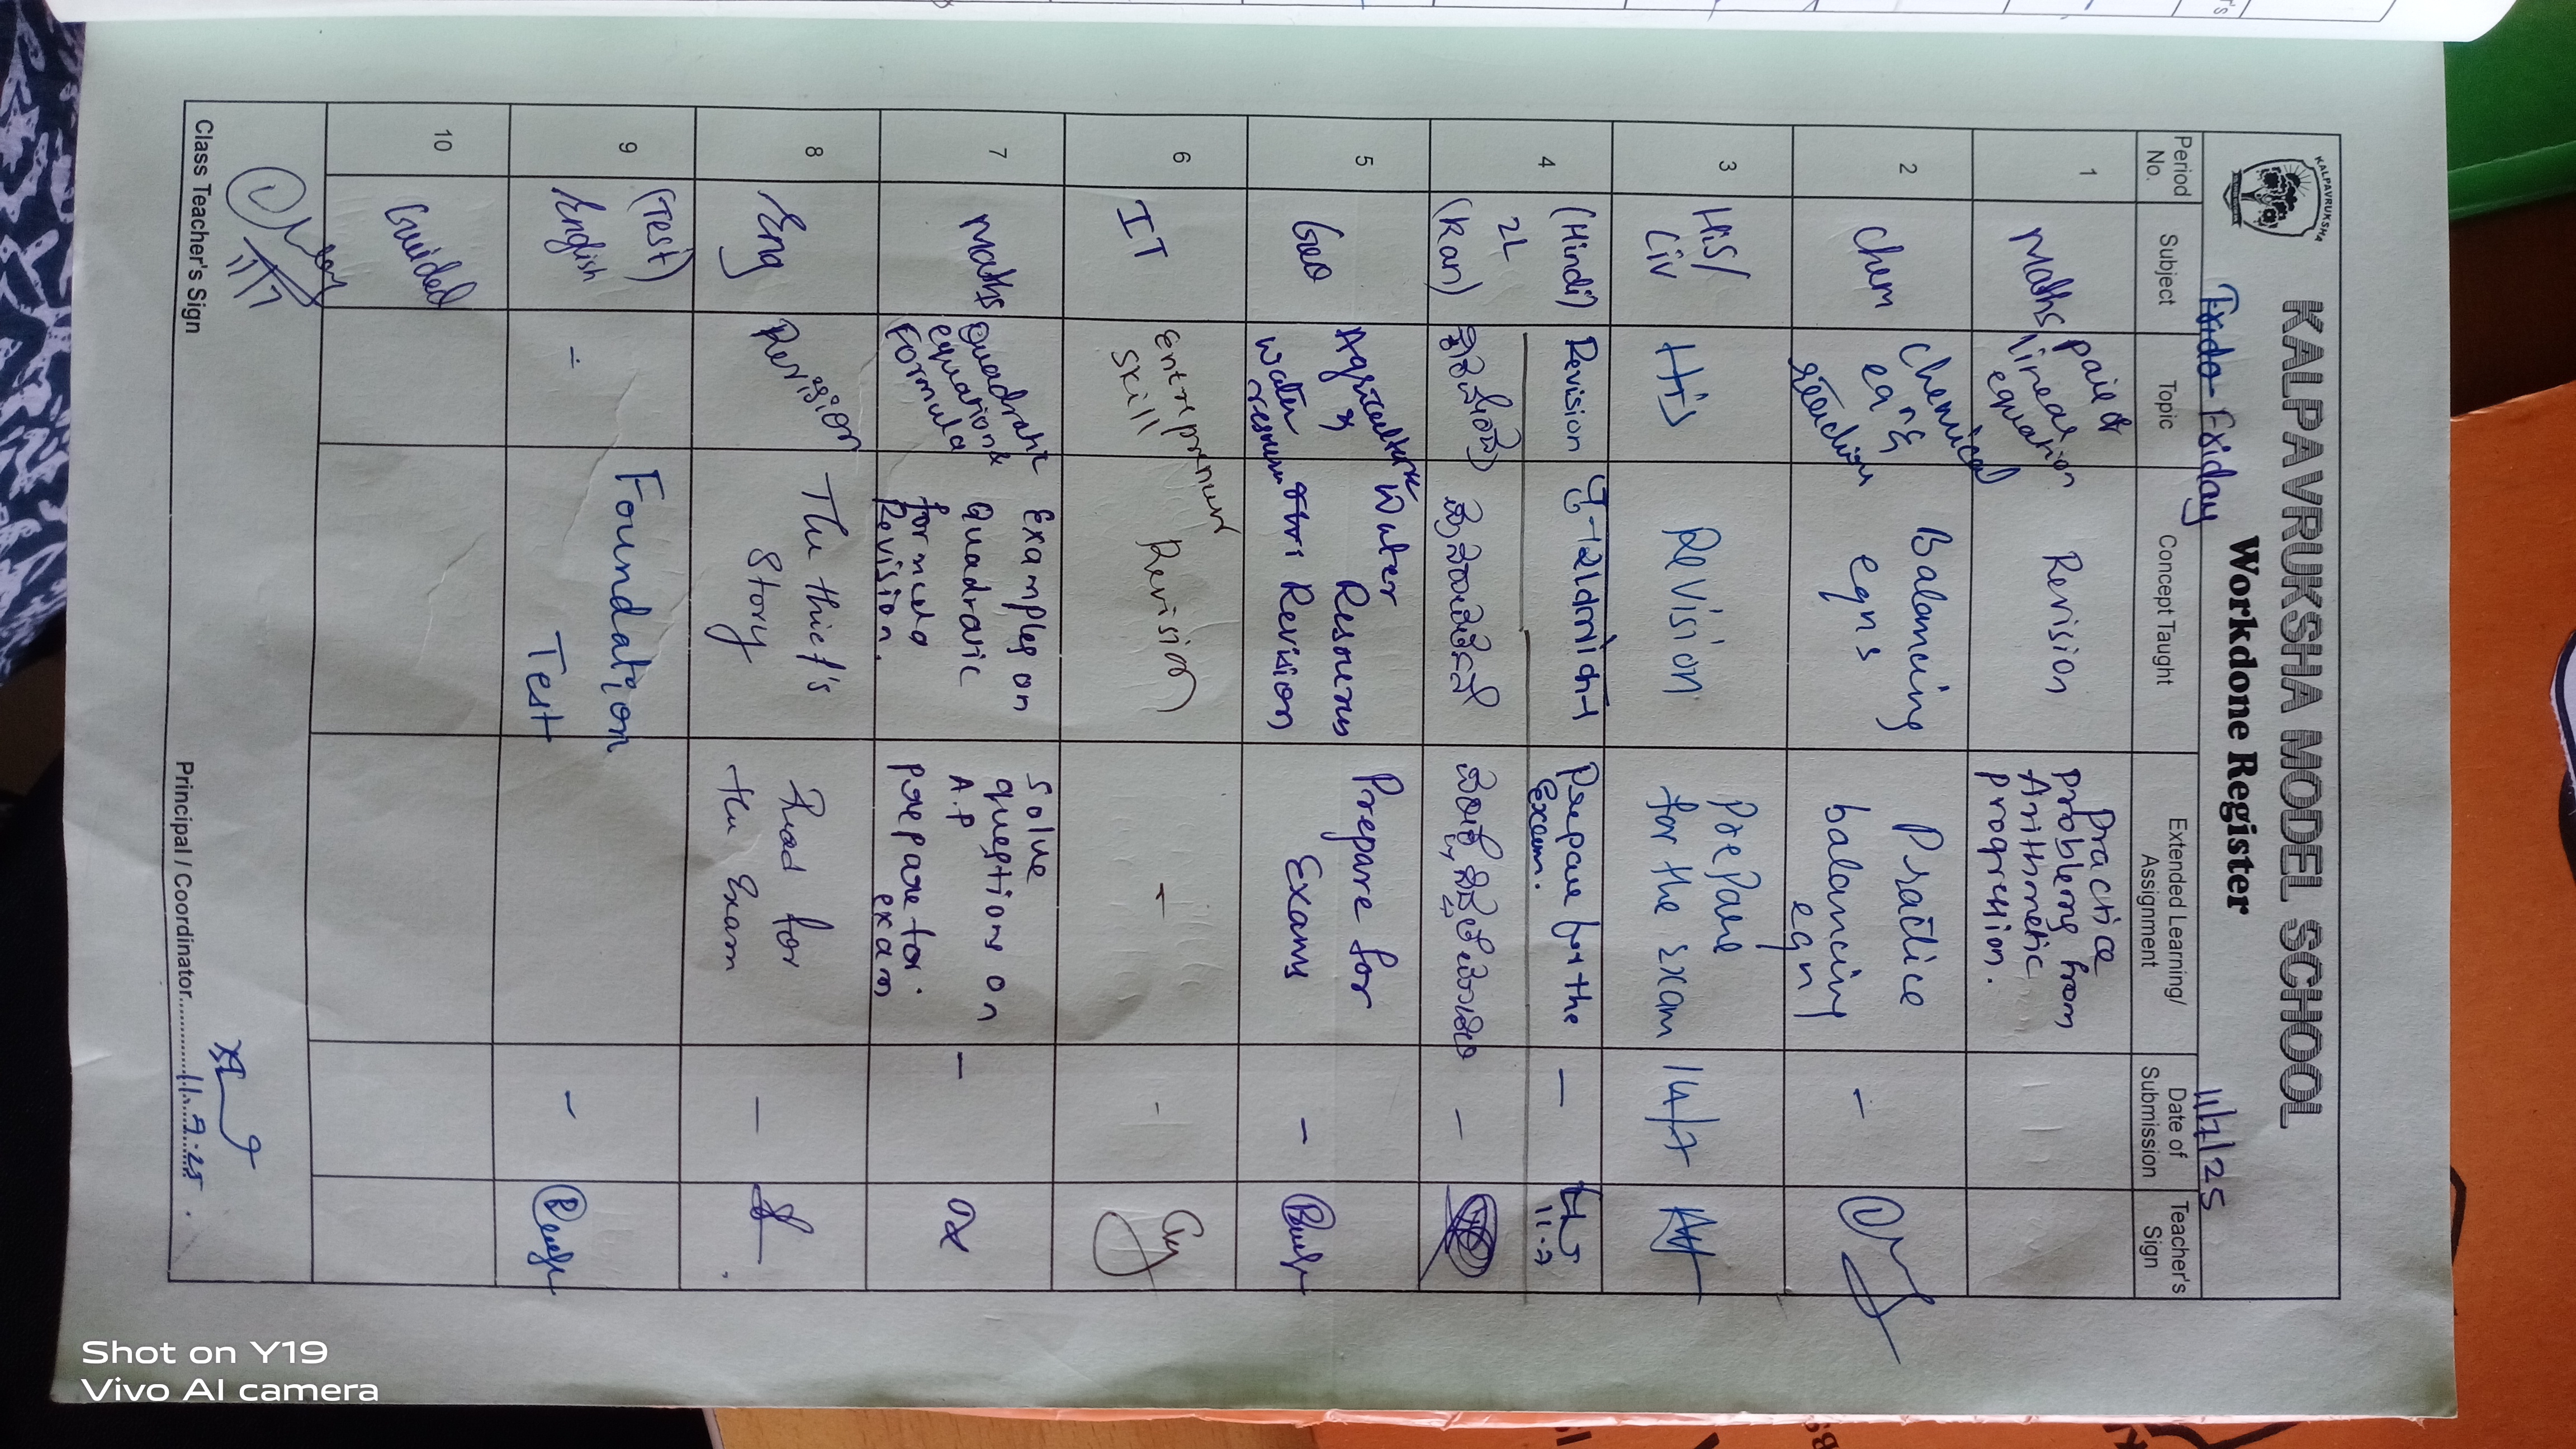 KALPAVRUKSHA
KALPAVRUKSHA MODEL SCHOOL
Workdone Register
Friday
11/7/25
Period No.
Subject
Topic
Concept Taught
Extended Learning/ Assignment
Date of Submission
Teacher's Sign
1
Maths
pair of
linear
equation
Revision
Practice
problems from
Arithmetic
progression.
2
Chem
Chemical
eqns
reaction
Balancing
eqns
Practice
balancing
eqn
-
3
His/
Civ
His
Revision
Prepare
for the exam
14/7
4
(Hindi)
2L
(Kan)
Revision
Prepare for the
Exam.
-
11-7
-
5
Geo
Agriculture
Water
resources
Water
Resources
Revision
Prepare for
Exams
-
6
IT
Entrepreneur
Skill
Revision
-
-
7
Maths
Quadratic
equation &
Formula
Examples on
Quadratic
formula
Revision.
Solve
questions on
A.P
prepare for
exam
-
8
Eng
Revision
The thief's
Story
Read for
the Exam
-
9
(Test)
English
-
Foundation
Test
-
10
Guided
11/7
Class Teacher's Sign
Principal / Coordinator
11.7.25
Shot on Y19
Vivo AI camera